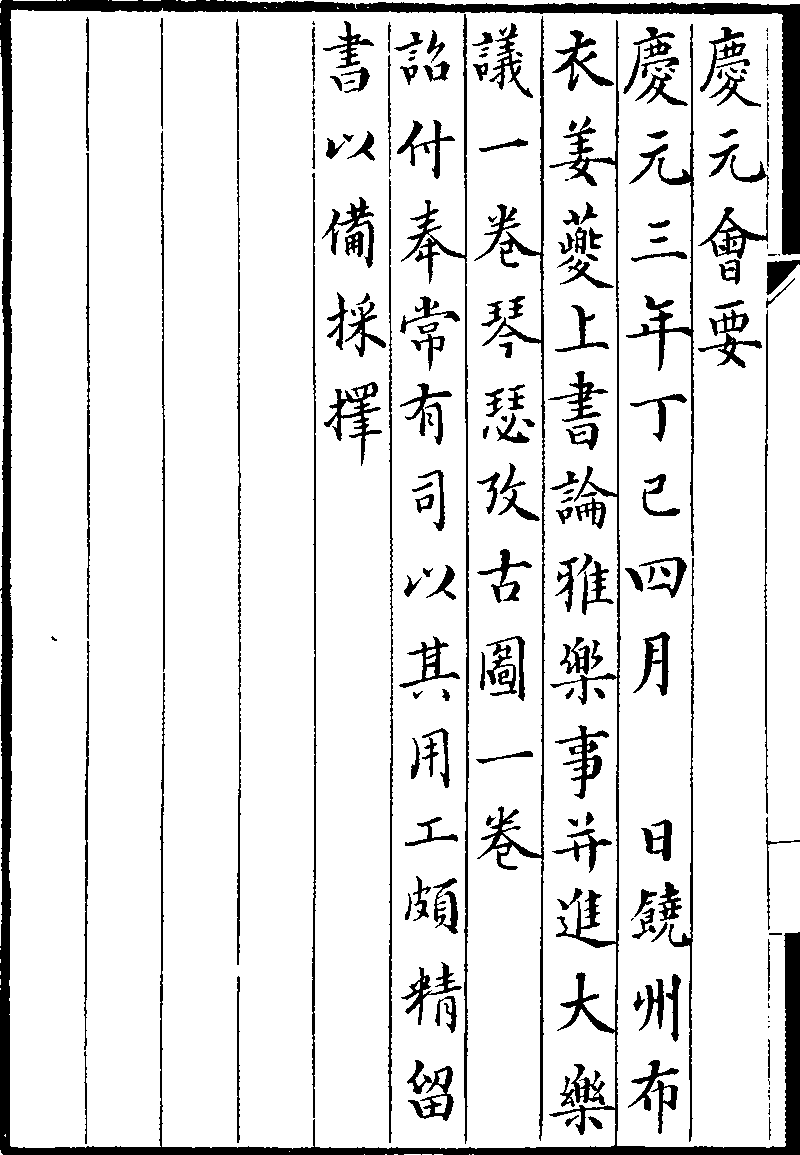 慶元會要
慶元三年丁巳四月　日饒州布
衣姜夔上書論雅樂事并進大樂
議一卷琴瑟攷古圖一卷
詔付奉常有司以其用工頗精留
書以備採擇